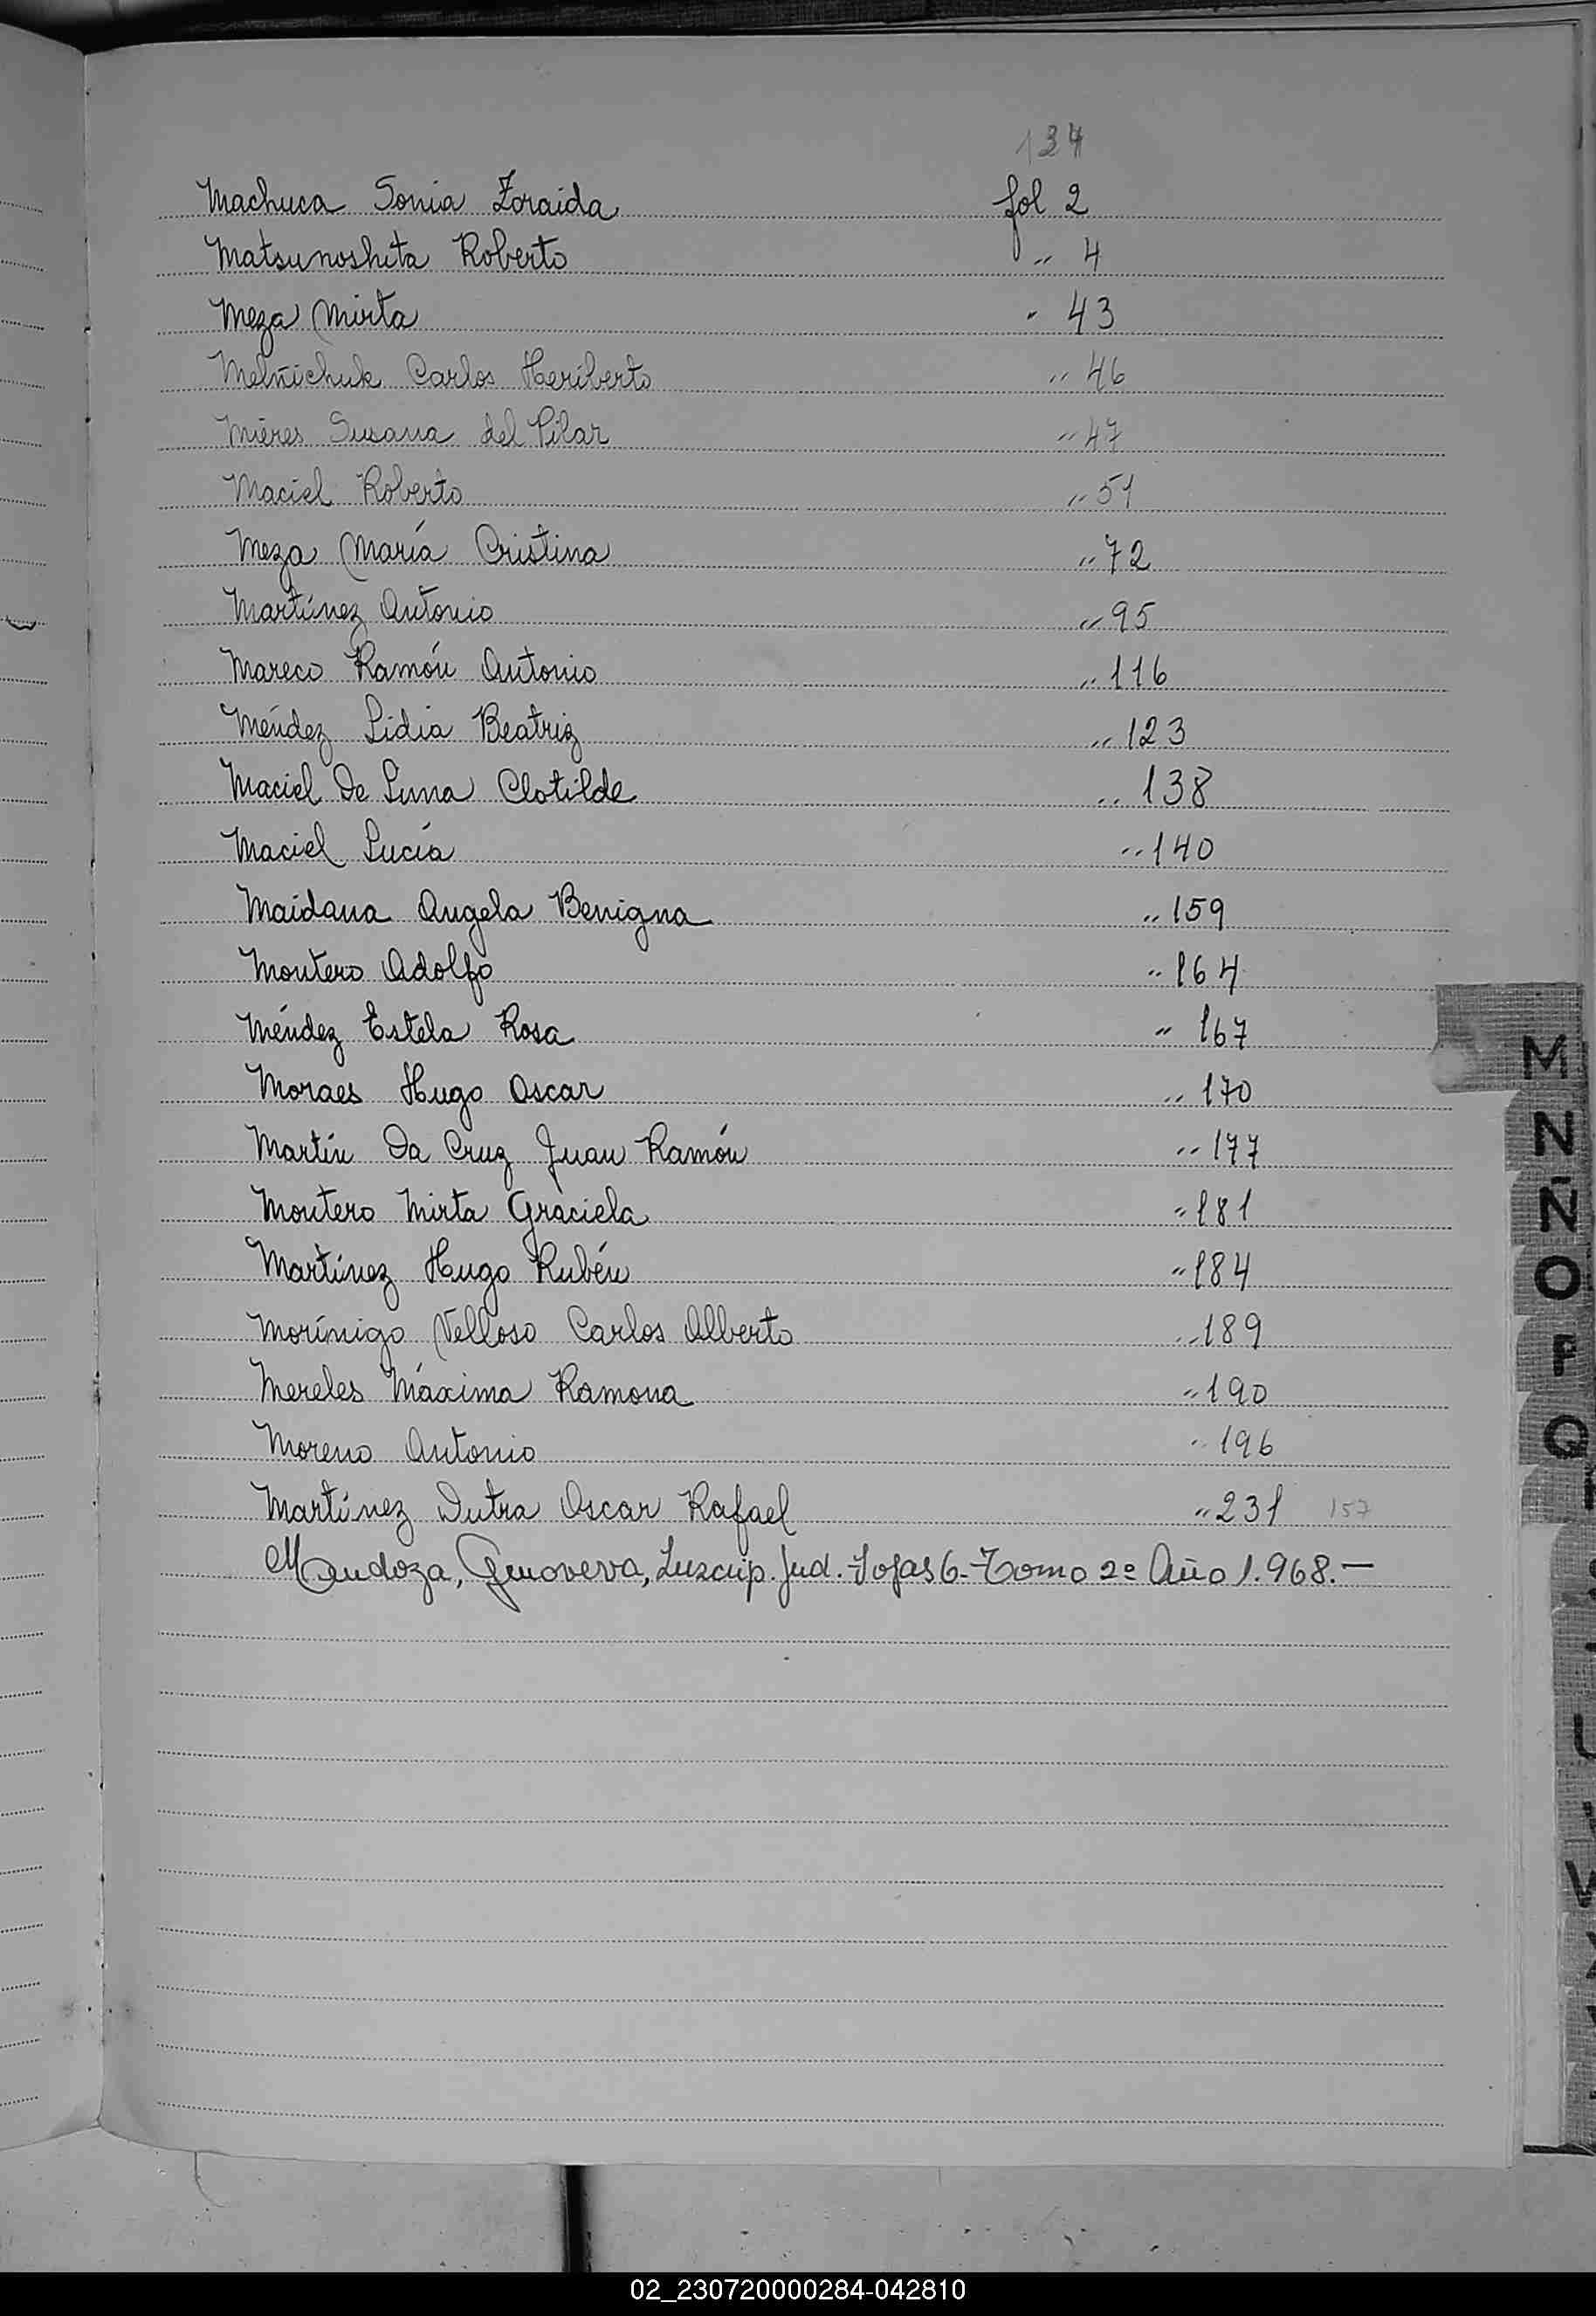 134
Machuca Sonia Zoraida fol 2
Matsunoshita Roberto " 4
Meza Mirta " 43
Melñichuk Carlos Heriberto " 46
Mieres Susana del Pilar " 47
Maciel Roberto " 51
Meza María Cristina " 72
Martínez Antonio " 95
Mareco Ramón Antonio " 116
Méndez Lidia Beatriz " 123
Maciel De Luna Clotilde " 138
Maciel Lucía " 140
Maidana Angela Benigna " 159
Montero Adolfo " 164
Méndez Estela Rosa " 167
Moraes Hugo Oscar " 170
Martín Da Cruz Juan Ramón " 177
Montero Mirta Graciela " 181
Martínez Hugo Rubén " 184
Morínigo Velloso Carlos Alberto " 189
Mereles Máxima Ramona " 190
Moreno Antonio " 196
Martínez Dutra Oscar Rafael " 231 157
Mendoza, Genoveva, Inscrip. Jud. Fojas 6- Tomo 2º Año 1.968.—
M
N
Ñ
O
P
Q
U
V
02_230720000284-042810